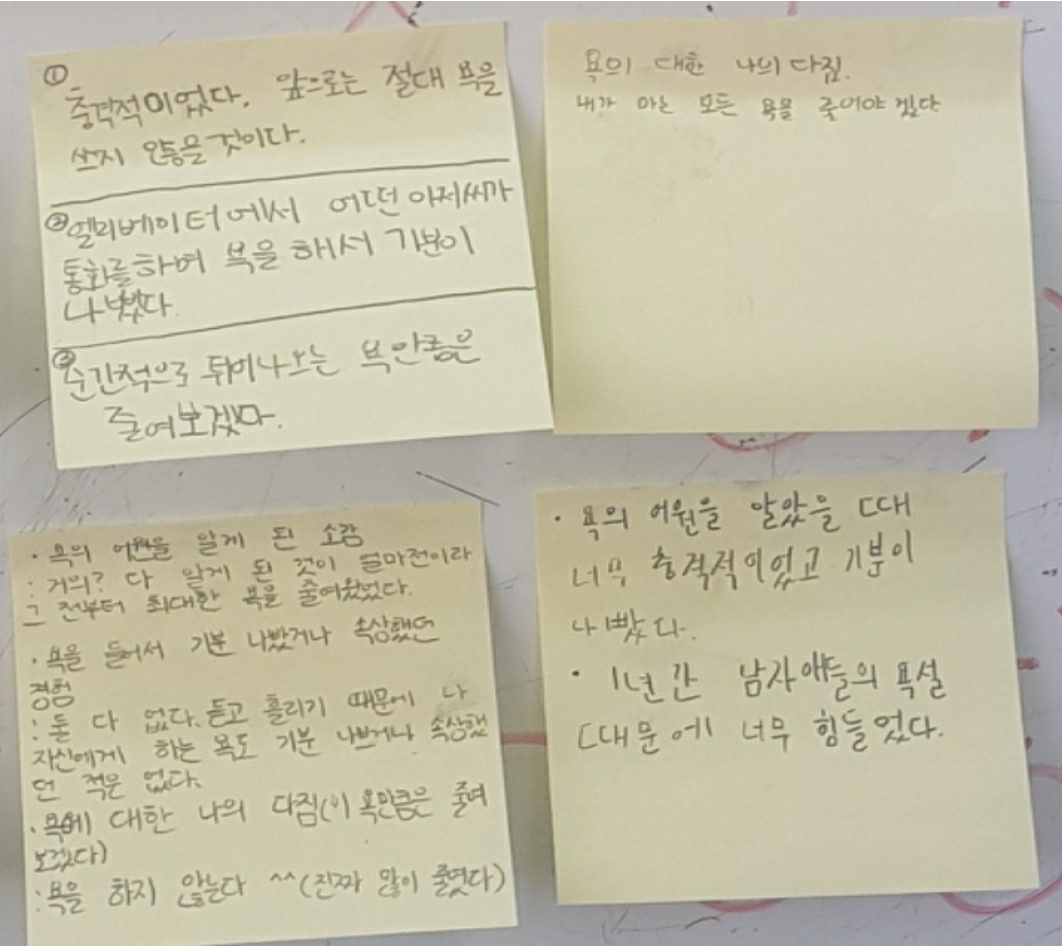 ①
충격적이었다. 앞으로는 절대 욕을
쓰지 않을것이다.
②엘리베이터에서 어떤 아저씨가
통화를하며 욕을 해서 기분이
나빴다.
③순간적으로 튀어나오는 욕만큼은
줄여보겠다.
욕의 대한 나의다짐.
내가 아는 모든 욕을 줄어야 겠다
· 욕의 어원을 알게 된 소감
: 거의? 다 알게 된 것이 얼마전이라
그 전부터 최대한 욕을 줄여왔었다.
· 욕을 들어서 기분 나빴거나 속상했던
경험
: 둘 다 없다. 듣고 흘리기 때문에 나
자신에게 하는 욕도 기분 나쁘거나 속상했
던 적은 없다.
· 욕에 대한 나의 다짐(이 욕만큼은 줄여
보겠다)
: 욕을 하지 않는다 ^^(진짜 많이 줄였다)
· 욕의 어원을 알았을 때
너무 충격적이었고 기분이
나빴다.
· 1년간 남자애들의 욕설
때문에 너무 힘들었다.